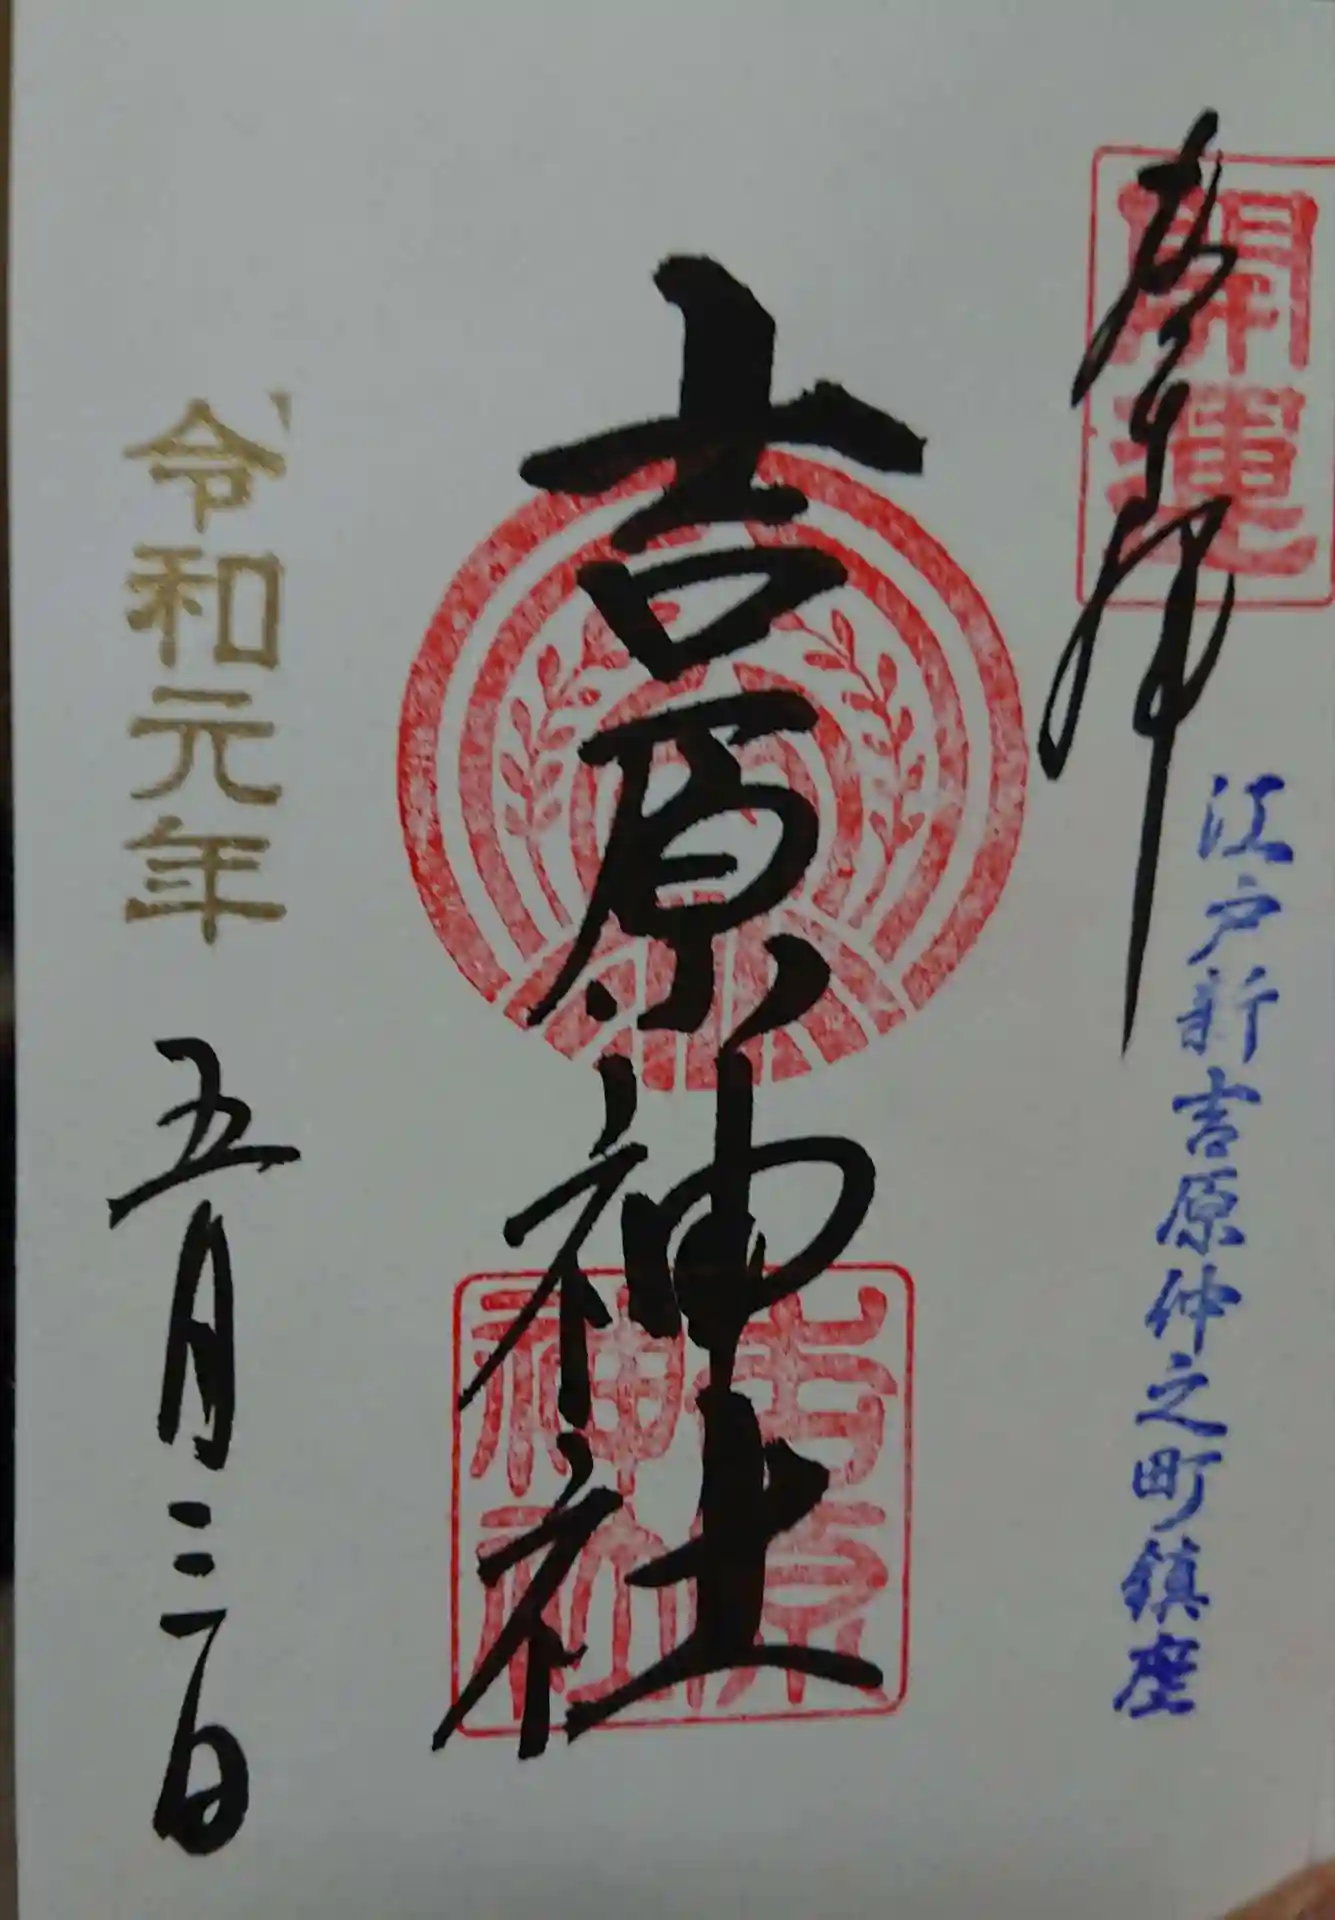 開運
奉拝
江戸新吉原仲之町鎮座
吉原神社
吉原
神社
令和元年
五月三日